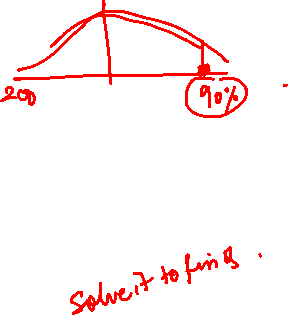 200 90%
Solve it to find